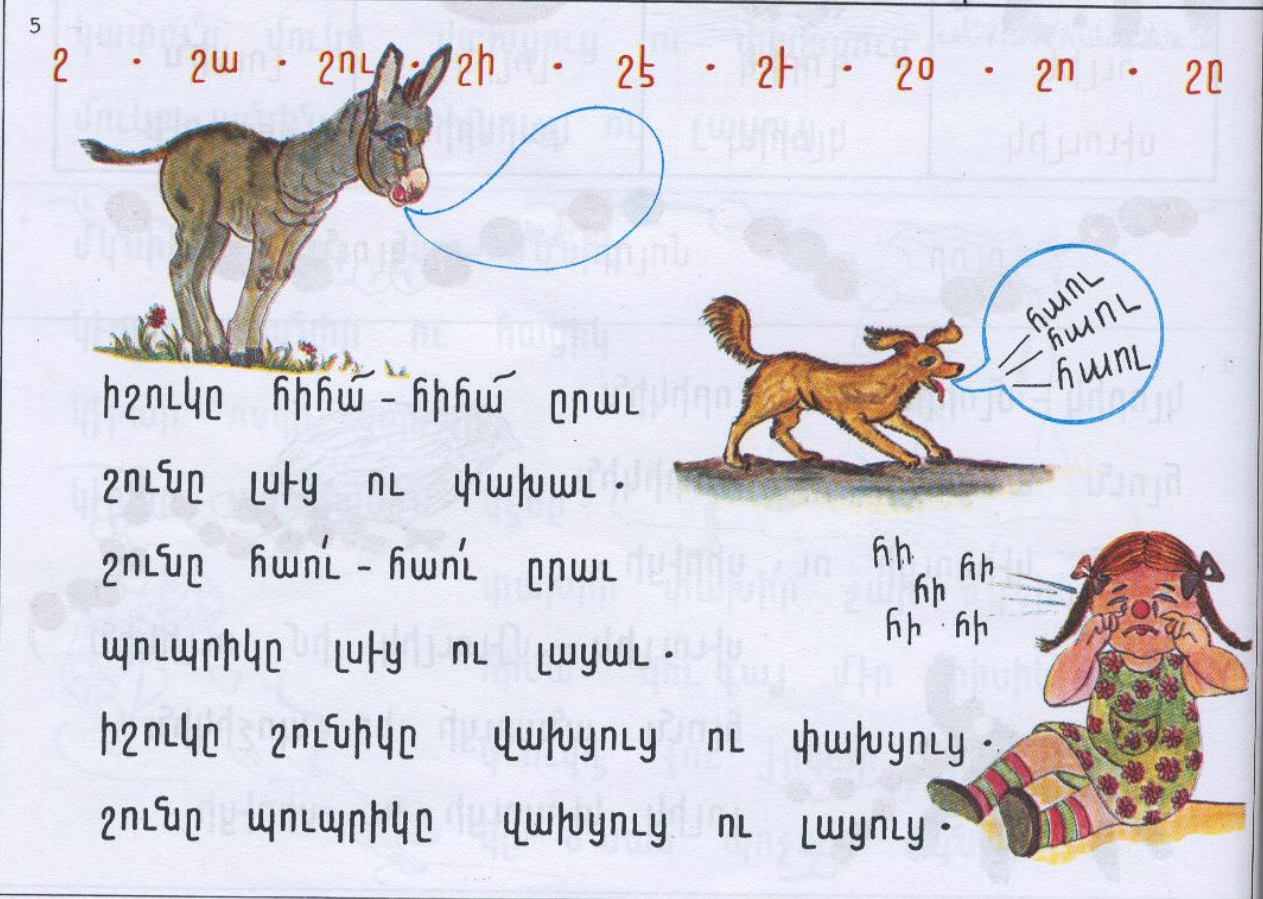 5
շ · շա · շու · շի · շէ · շե · շօ · շո · շը
հաու
հաու
հաու
իշուկը հիհա՜ - հիհա՜ ըրաւ
շունը լսեց ու փախաւ .
շունը հաո՛ւ - հաո՛ւ ըրաւ
հի հի
հի
հի հի
պուպրիկը լսեց ու լացաւ .
իշուկը շունիկը վախցուց ու փախցուց .
շունը պուպրիկը վախցուց ու լացուց .